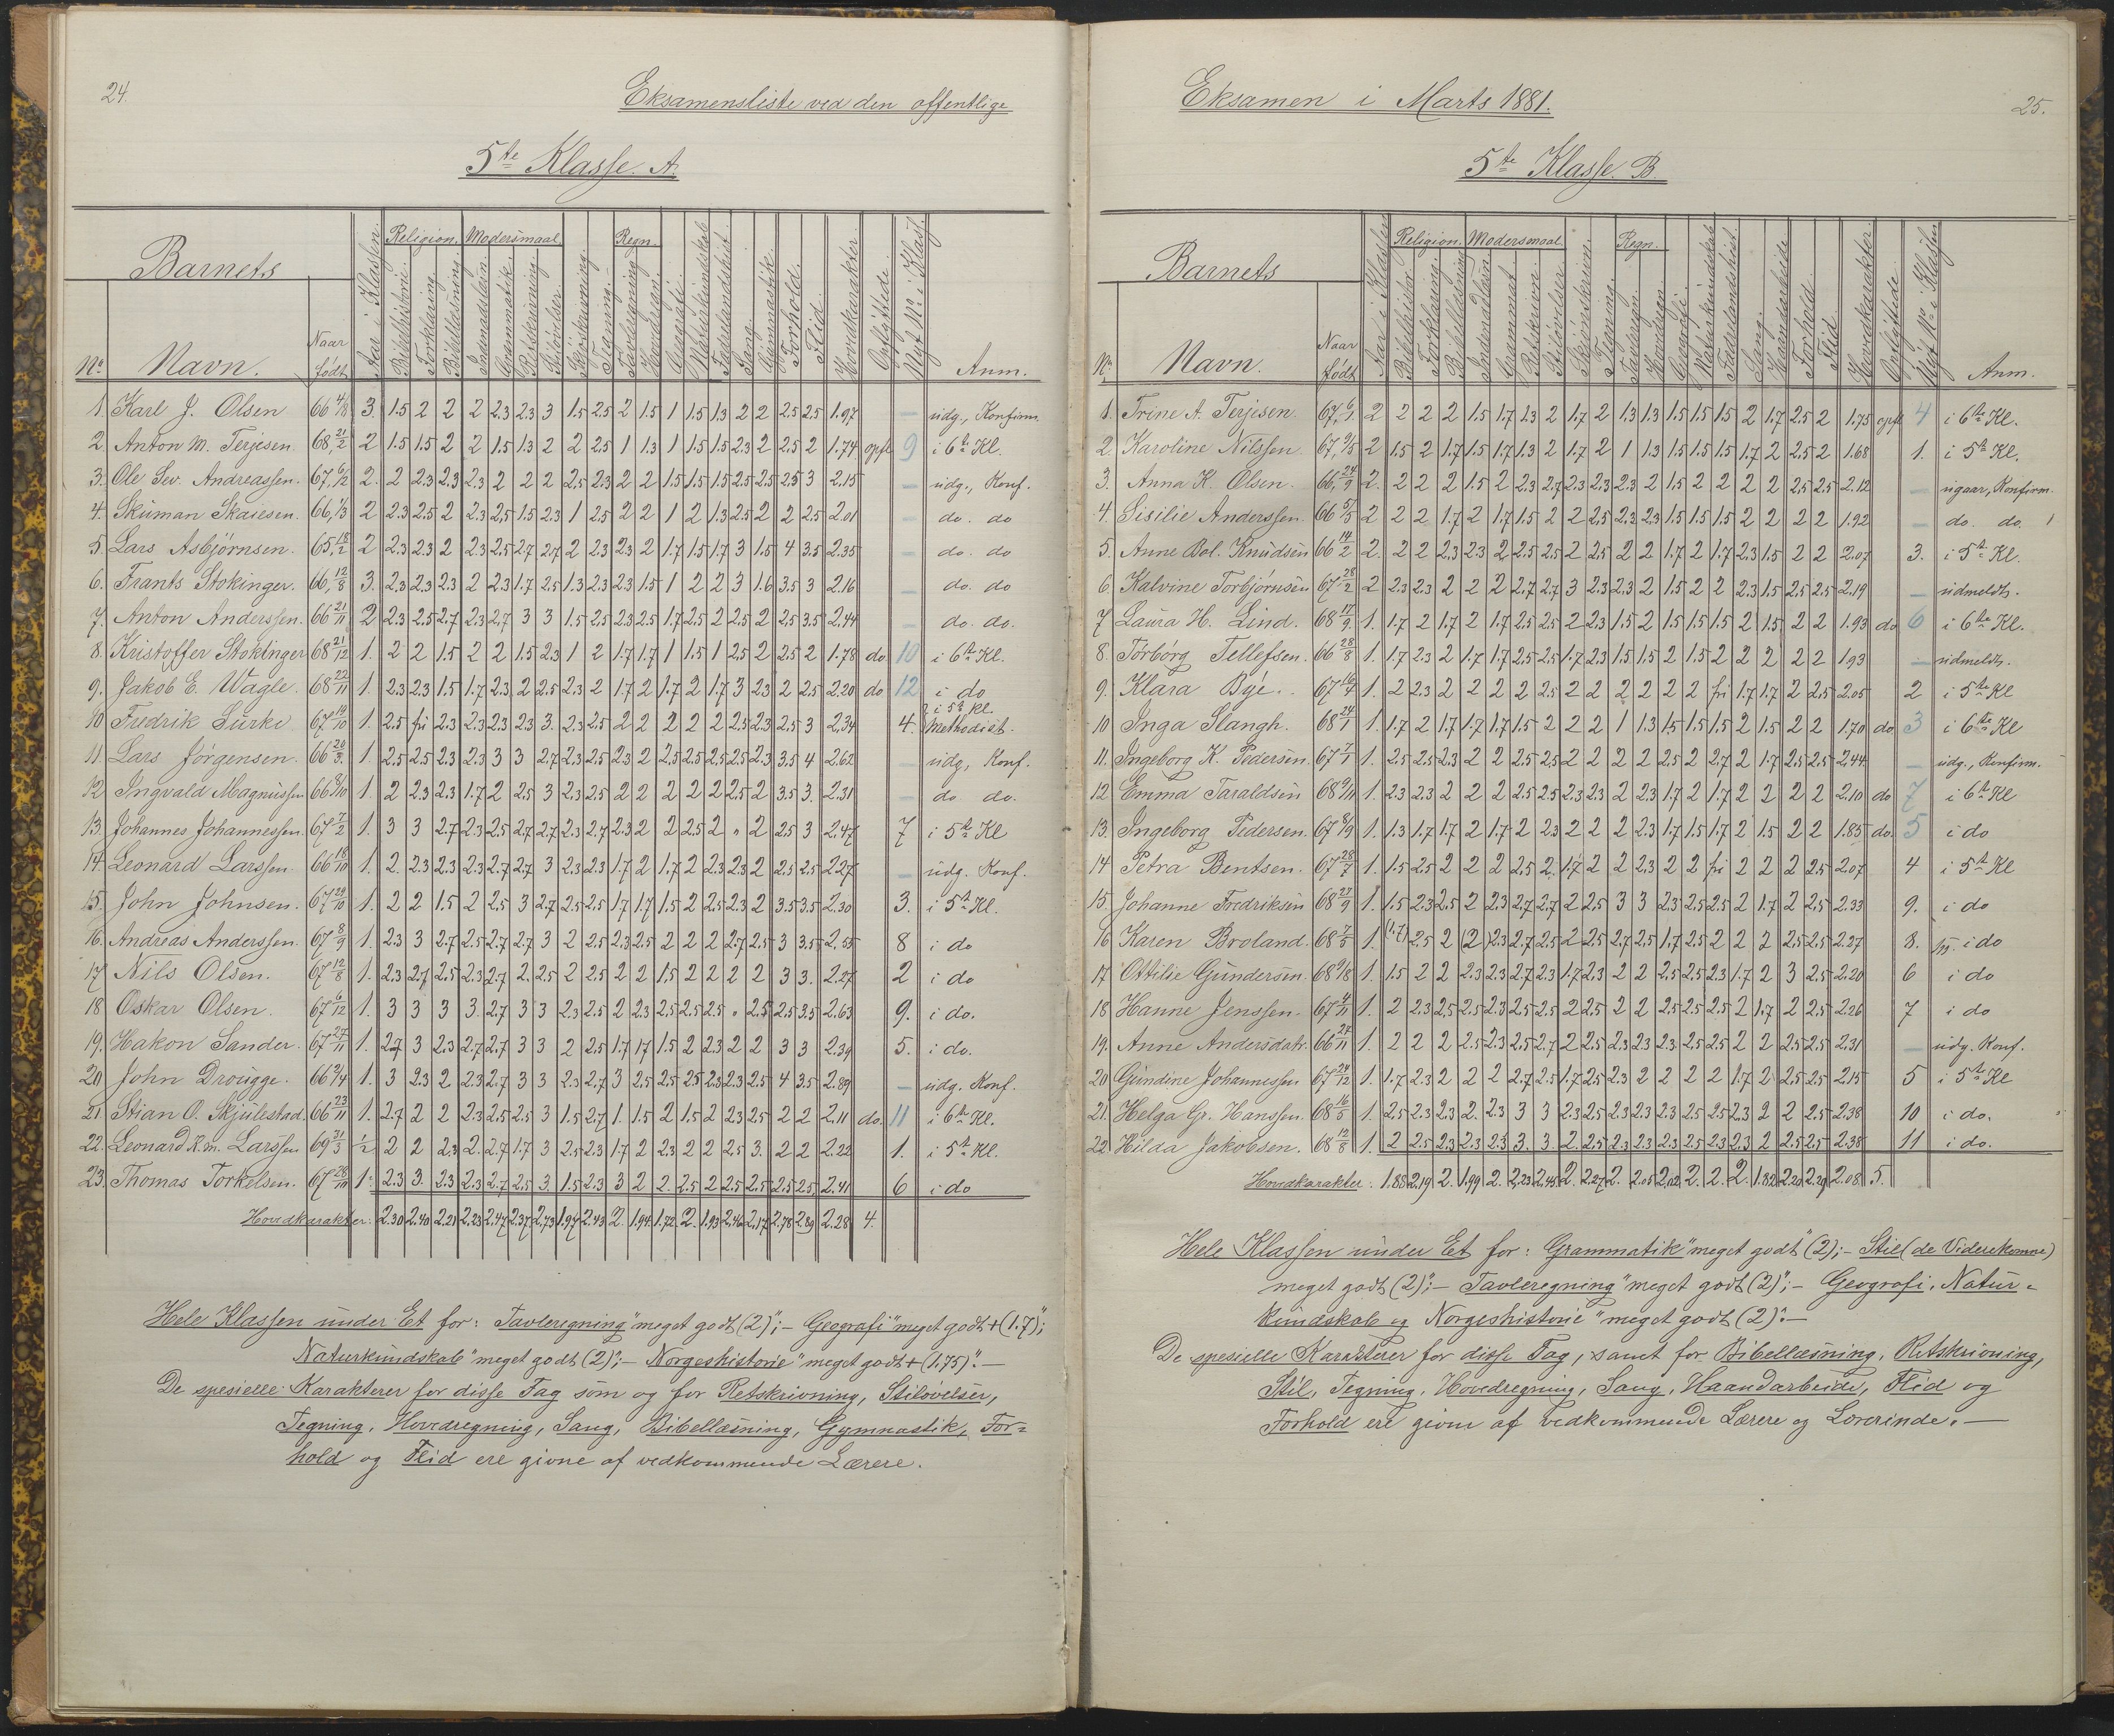 24.
Eksamensliste ved den offentlige
5te Klasse. A.
Barnets
Religion. Modersmaal. Regn.
No Navn. Naar født Aar i Klassen. Bibelhistorie. Forklaring. Bibellæsning. Indenadslæsn. Grammatik. Retskrivning. Stiløvelser. Skjønskrivning. Tegning. Tavleregning. Hovedregn. Geografi. Naturkundskab. Fædrelandshist. Sang. Gymnastik. Forhold. Flid. Hovedkarakter. Opflyttede. Nyt No i Klass. Anm.
1. Karl J. Olsen 66 4/8 3. 1.5 2 2 2 2.3 2.3 3 1.5 2.5 2 1.5 1 1.5 1.3 2 2 2.5 2.5 1.97 — udg., Konfirm.
2. Anton M. Terjesen. 68, 21/2 2 1.5 1.5 2 2 1.5 1.3 2 2 2.5 1 1.3 1 1.5 1.5 2.3 2 2.5 2 1.74 opfl. 9 i 6te Kl.
3. Ole Sev. Andreassen. 67, 6/12 2. 2 2.3 2.3 2.3 2 2 2 2.5 2.3 2 2 1.5 1.5 1.5 2.5 2.5 2.5 3 2.15 — udg., Konf.
4. Skuman Skaiesen. 66, 1/3 2 2.3 2.5 2 2.3 2.5 1.5 2.3 1 2.5 2 2 1 2 1.3 2.5 2 2 2.5 2.01 — do. do
5. Lars Asbjørnsen. 65, 18/2 2 2.3 2.3 2 2.3 2.5 2.7 2.7 2 2.3 2.3 2 1.7 1.5 1.7 3 1.5 4 3.5 2.35 — do. do
6. Frants Stokinger. 66, 12/8 3. 2.3 2.3 2.3 2 2.3 1.7 2.5 1.3 2.3 2.3 1.5 1 2 2 3 1.6 3.5 3 2.16 — do. do
7. Anton Anderssen. 66 21/11 2 2.3 2.5 2.7 2.3 2.7 3 3 1.5 2.5 2.3 2.5 1.7 2.5 2 2.5 2 2.5 3.5 2.44 — do. do.
8. Kristoffer Stokinger 68 21/12 1. 2 2 1.5 2 2 1.5 2.3 1 2 1.7 1.7 1 1.5 1 2.5 2 2.5 2 1.78 do. 10 i 6te Kl.
9. Jakob E. Wagle. 68 22/11 1. 2.3 2.3 1.5 1.7 2.3 2 2.5 2.3 2 1.7 2 1.7 2 1.7 3 2.3 2 2.5 2.20 do 12 i do
10 Fredrik Surke 67 14/10 1. 2.5 fri 2.3 2.3 2.3 2.3 3. 2.3 2.5 2 2 2 2 2 2.5 2.3 2.5 3 2.34 4. i 5te Kl. Methodist.
11. Lars Jørgensen. 66 20/3. 1. 2.5 2.5 2.3 2.3 3 3 2.7 2.3 2.5 2.3 2 2.5 2.5 2.5 2.5 2.3 3.5 4 2.62 — udg., Konf.
12 Ingvald Magnussen 66 8/10 1. 2 2.3 2.3 1.7 2 2.5 3 2.3 2.5 2 2 2 2 2 2.5 2 3.5 3. 2.31 — do. do.
13. Johannes Johannessen. 67 7/2 1. 3 3 2.7 2.3 2.5 2.7 2.7 2.3 2.7 2.3 2 2 2.5 2 " 2 2.5 3 2.47 7 i 5te Kl
14. Leonard Larssen. 66 18/10 1. 2. 2.3 2.3 2.3 2.7 2.7 3 2.3 2.3 1.7 2 1.7 2 2.3 2.3 2 2.5 2.5 2.27 — udg. Konf.
15. John Johnsen. 67 29/10 1. 2 2 1.5 2 2.5 3 2.7 2.5 2.5 1.7 1.7 1.5 2 2.5 2.3 2 3.5 3.5 2.30 3. i 5te Kl.
16. Andreas Anderssen. 67 8/9 1. 2.3 3 2.7 2.5 2.7 2.7 3 2 2.5 2.3 2.5 2 2 2 2.7 2.5 3 3.5 2.55 8 i do
17 Nils Olsen. 67 12/8 1. 2.3 2.7 2.5 2.3 2.7 2. 2.5 2 2.5 2 2 1.5 2 2 2 2 3 3. 2.27 2 i do
18 Oskar Olsen. 67 6/12 1. 3 3 3 3. 2.7 3 3 2.3 2.5 2 2.3 2.5 2.5 2.5 " 2.5 2.5 3.5 2.63 9. i do.
19. Hakon Sander. 67 27/11 1. 2.7 3 2.3 2.7 2.7 3 3 2 2.5 1.7 1.7 1.5 2 2.3 2 2 3 3 2.39 5. i do.
20 John Drougge. 66 2/4 1. 3 2.3 2 2.3 2.7 3 3 2.3 2.7 3 2.5 2.5 2.5 2.3 2.3 2.5 4 3.5 2.89 — udg. Konf.
21 Stian O. Skjulestad. 66 23/11 1. 2.7 2 2 2.3 2.5 2.5 3 1.5 2.7 1. 1.5 2 1.5 2 2.3 2.5 2 2 2.11 do. 11 i 6te Kl.
22. Leonard R.M. Larssen 69 31/3 1/2 2 2 2.3 2. 2.7 1.7 3 2.5 2.3 1.7 2 2.3 2 2 2.5 3. 2 2 2.22 1. i 5te Kl.
23. Thomas Torkelsen. 67 28/10 1. 2.3 3. 2.3 2.3 2.7 2.5 3. 1.5 2.3 3 2 2. 2.5 2 2.5 2.5 2.5 2.5 2.41 6 i do
Hovedkarakter: 2.30 2.40 2.21 2.23 2.47 2.37 2.73 1.97 2.43 2. 1.94 1.72 2. 1.93 2.46 2.17 2.78 2.89 2.28 4.
Hele Klassen under Et for: Tavleregning "meget godt (2)"; — Geografi "meget godt + (1.7)";
Naturkundskab "meget godt (2)"; — Norgeshistorie "meget godt + (1.75)". —
De spesielle Karakterer for disse Fag som og for Retskrivning, Stiløvelser,
Tegning, Hovedregning, Sang, Bibellæsning, Gymnastik, For=
hold og Flid ere givne af vedkommende Lærere.
Eksamen i Marts 1881.
25.
5te Klasse. B.
Barnets
Religion. Modersmaal. Regn.
No Navn. Naar født Aar i Klassen Bibelhistor. Forklaring. Bibellæsning Indenadslæsn. Grammat. Retskrivn. Stiløvelser. Skjønskrivn. Tegning. Tavleregn. Hovedregn. Geografi. Naturkundskab. Fædrelandshist. Sang. Haandarbeide. Forhold. Flid. Hovedkarakter. Opflyttede. Nyt No i Klassen Anm.
1. Trine A. Terjesen. 67, 6/1. 2 2 2 2 1.5 1.7 1.3 2 1.7 2 1.3 1.3 1.5 1.5 1.5 2 1.7 2.5 2 1.75 opfl. 4 i 6te Kl.
2. Karoline Nilssen 67, 9/5 2 1.5 2 1.7 1.5 1.7 1.3 2 1.7 2 1 1.3 1.5 1.5 1.5 1.7 2 2.5 2 1.68 1. i 5te Kl.
3. Anna K. Olsen. 66, 24/9 2. 2 2 2 1.5 2 2.3 2.7 2.3 2.3 2.3 2 1.5 2 2 2 2 2.5 2.5 2.12 — ugaar, Konfirm.
4. Sisilie Anderssen. 66 5/5 2 2 2 1.7 2 1.7 1.5 2 2 2.5 2.3 2.3 1.5 1.5 1.5 2 2 2 2 1.92 — do. do.
5. Anne Bol. Knudsen 66 14/2 2. 2 2 2.3 2.3 2 2.5 2.5 2 2.5 2 2 1.7 2 1.7 2.3 1.5 2 2 2.07 3. i 5te Kl.
6. Kalvine Torbjørnsen 67 28/2 2 2.3 2.3 2 2 2 2.7 2.7 3 2.3 2.3 2 1.5 2 2 2.3 1.5 2.5 2.5 2.19 — udmeldt.
7 Laura H. Lind. 68 17/9 1. 1.7 2 1.7 2 1.7 2.5 2.5 2 2.3 1.5 2 1.5 1.5 1.5 2 1.5 2 2 1.93 do 6 i 6te Kl.
8. Torborg Tellefsen. 66 28/8 1. 1.7 2.3 2 1.7 1.7 2.5 2.5 1.7 2.3 1.5 1.5 2 1.5 2 2 2 2 2 1.93 — udmeldt.
9. Klara Bye. 67 16/4 1. 2 2.3 2 2 2 2 2.5 2 2 2 2 2 2 fri 1.7 1.7 2 2.5 2.05 2 i 5te Kl
10 Inga Slangh. 68 24/1 1. 1.7 2 1.7 1.7 1.7 1.5 2 2 2 1 1.3 1.5 1.5 1.5 2 1.5 2 2 1.70 do 3 i 6te Kl
11. Ingeborg K. Pedersen. 67 7/1 1. 2.5 2.5 2.3 2 2 2.5 2.5 2 2 2 2 2.5 2 2.7 2 1.7 2.5 2.5 2.44 — udg., Konfirm.
12 Emma Taraldsen 68 9/11 1. 2.3 2.3 2 2 2 2.5 2.5 2.3 2.3 2 2.3 1.7 2 1.7 2 2 2 2 2.10 do 7 i 6te Kl
13. Ingeborg Pedersen. 67 8/9 1. 1.3 1.7 1.7 2 1.7 2 2.3 2 2 2 2.3 1.7 1.5 1.7 2 1.5 2 2 1.85 do. 5 i do
14 Petra Bentsen. 67 28/7 1. 1.5 2.5 2 2 2 2.5 2. 1.7 2 2 2.3 2 2 fri 2 2 2 2.5 2.07 4 i 5te Kl
15. Johanne Fredriksen 68 27/9 1. 1.5 2.3 2.5 2 2.3 2.7 2.7 2 2.5 3 3 2.3 2.5 2.5 2 1.7 2 2.5 2.33 9. i do
16 Karen Broland. 68 7/5 1. (1.7) 2.5 2 (2) 2.3 2.7 2.5 2 2.5 2.7 2.5 1.7 2.5 2 2 2 2.5 2.5 2.27 8. i do
17. Ottilie Gundersen. 68 9/8 1. 1.5 2 2 2.3 2.3 2.7 2.3 1.7 2.3 2 2 2.5 2.5 2.3 1.7 2 3 2.5 2.20 6 i do
18 Hanne Jenssen. 67 4/11 1. 2 2.3 2.5 2.5 2.3 2.5 2.5 2 2.5 2 2 2.5 2.5 2.5 2 1.7 2 2.5 2.26 7 i do
19. Anne Andersdatr. 66 27/11 1. 2 2 2 2.5 2.3 2.5 2.7 2 2.5 2.3 2.3 2.3 2.5 2.5 2 2 2.5 2.5 2.31 — udg. Konf.
20 Gundine Johannessen 67 24/12 1. 1.7 2.3 2 2 2 2.7 2.5 1.7 2.5 2.3 2 2 2 2 1.7 2 2.5 2.5 2.15 5 i 5te Kl
21. Helga Gr. Hanssen. 68 16/5 1. 2.5 2.3 2.3 2. 2.3 3 3 2.3 2.5 2.3 2.3 2.3 2.5 2.5 2.3 2 2 2.5 2.38 10 i do.
22 Hilda Jakobsen. 68 12/8 1. 2 2.5 2.3 2.3 2.3 3. 3. 2. 2.5 2.3 2.3 2.3 2.5 2.3 2.3 2 2.5 2.5 2.38 11 i do.
Hovedkarakter: 1.88 2.19 2. 1.99 2. 2.23 2.45 2. 2.27 2. 2.05 2.02 2. 2. 2. 1.82 2.20 2.29 2.08 5.
Hele Klassen under Et for: Grammatik "meget godt" (2); — Stil (de Viderekomne)
meget godt (2)"; — Tavleregning "meget godt (2)"; — Geografi, Natur=
kundskab og Norgeshistorie "meget godt (2)". —
De spesielle Karakterer for disse Fag, samt for Bibellæsning, Retskrivning,
Stil, Tegning, Hovedregning, Sang, Haandarbeide, Flid og
Forhold ere givne af vedkommende Lærere og Lærerinde. —